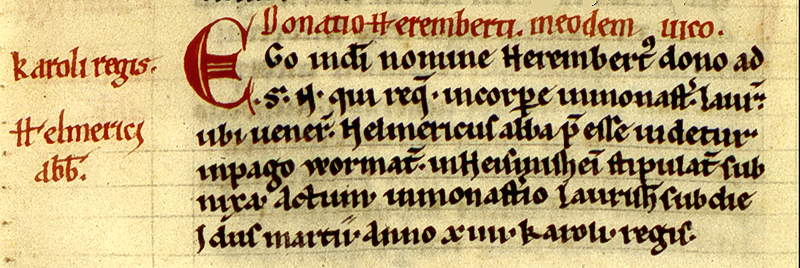 Donatio Heremberti. in eodem uico.
Karoli regis.
Ego in dei nomine Herembert' dono ad
.S. N. qui req̄. in corpore in monast̄. laur̄.
Helmerici
ubi uener̄. Helmericus abba p̄esse uidetur.
abb̄.
in pago wormat̄. in Heisinisheī stipulat̄ sub
nixa. Actum in monast̄io laurish̄ sub die
Idus martii. Anno xiiii. karoli regis.